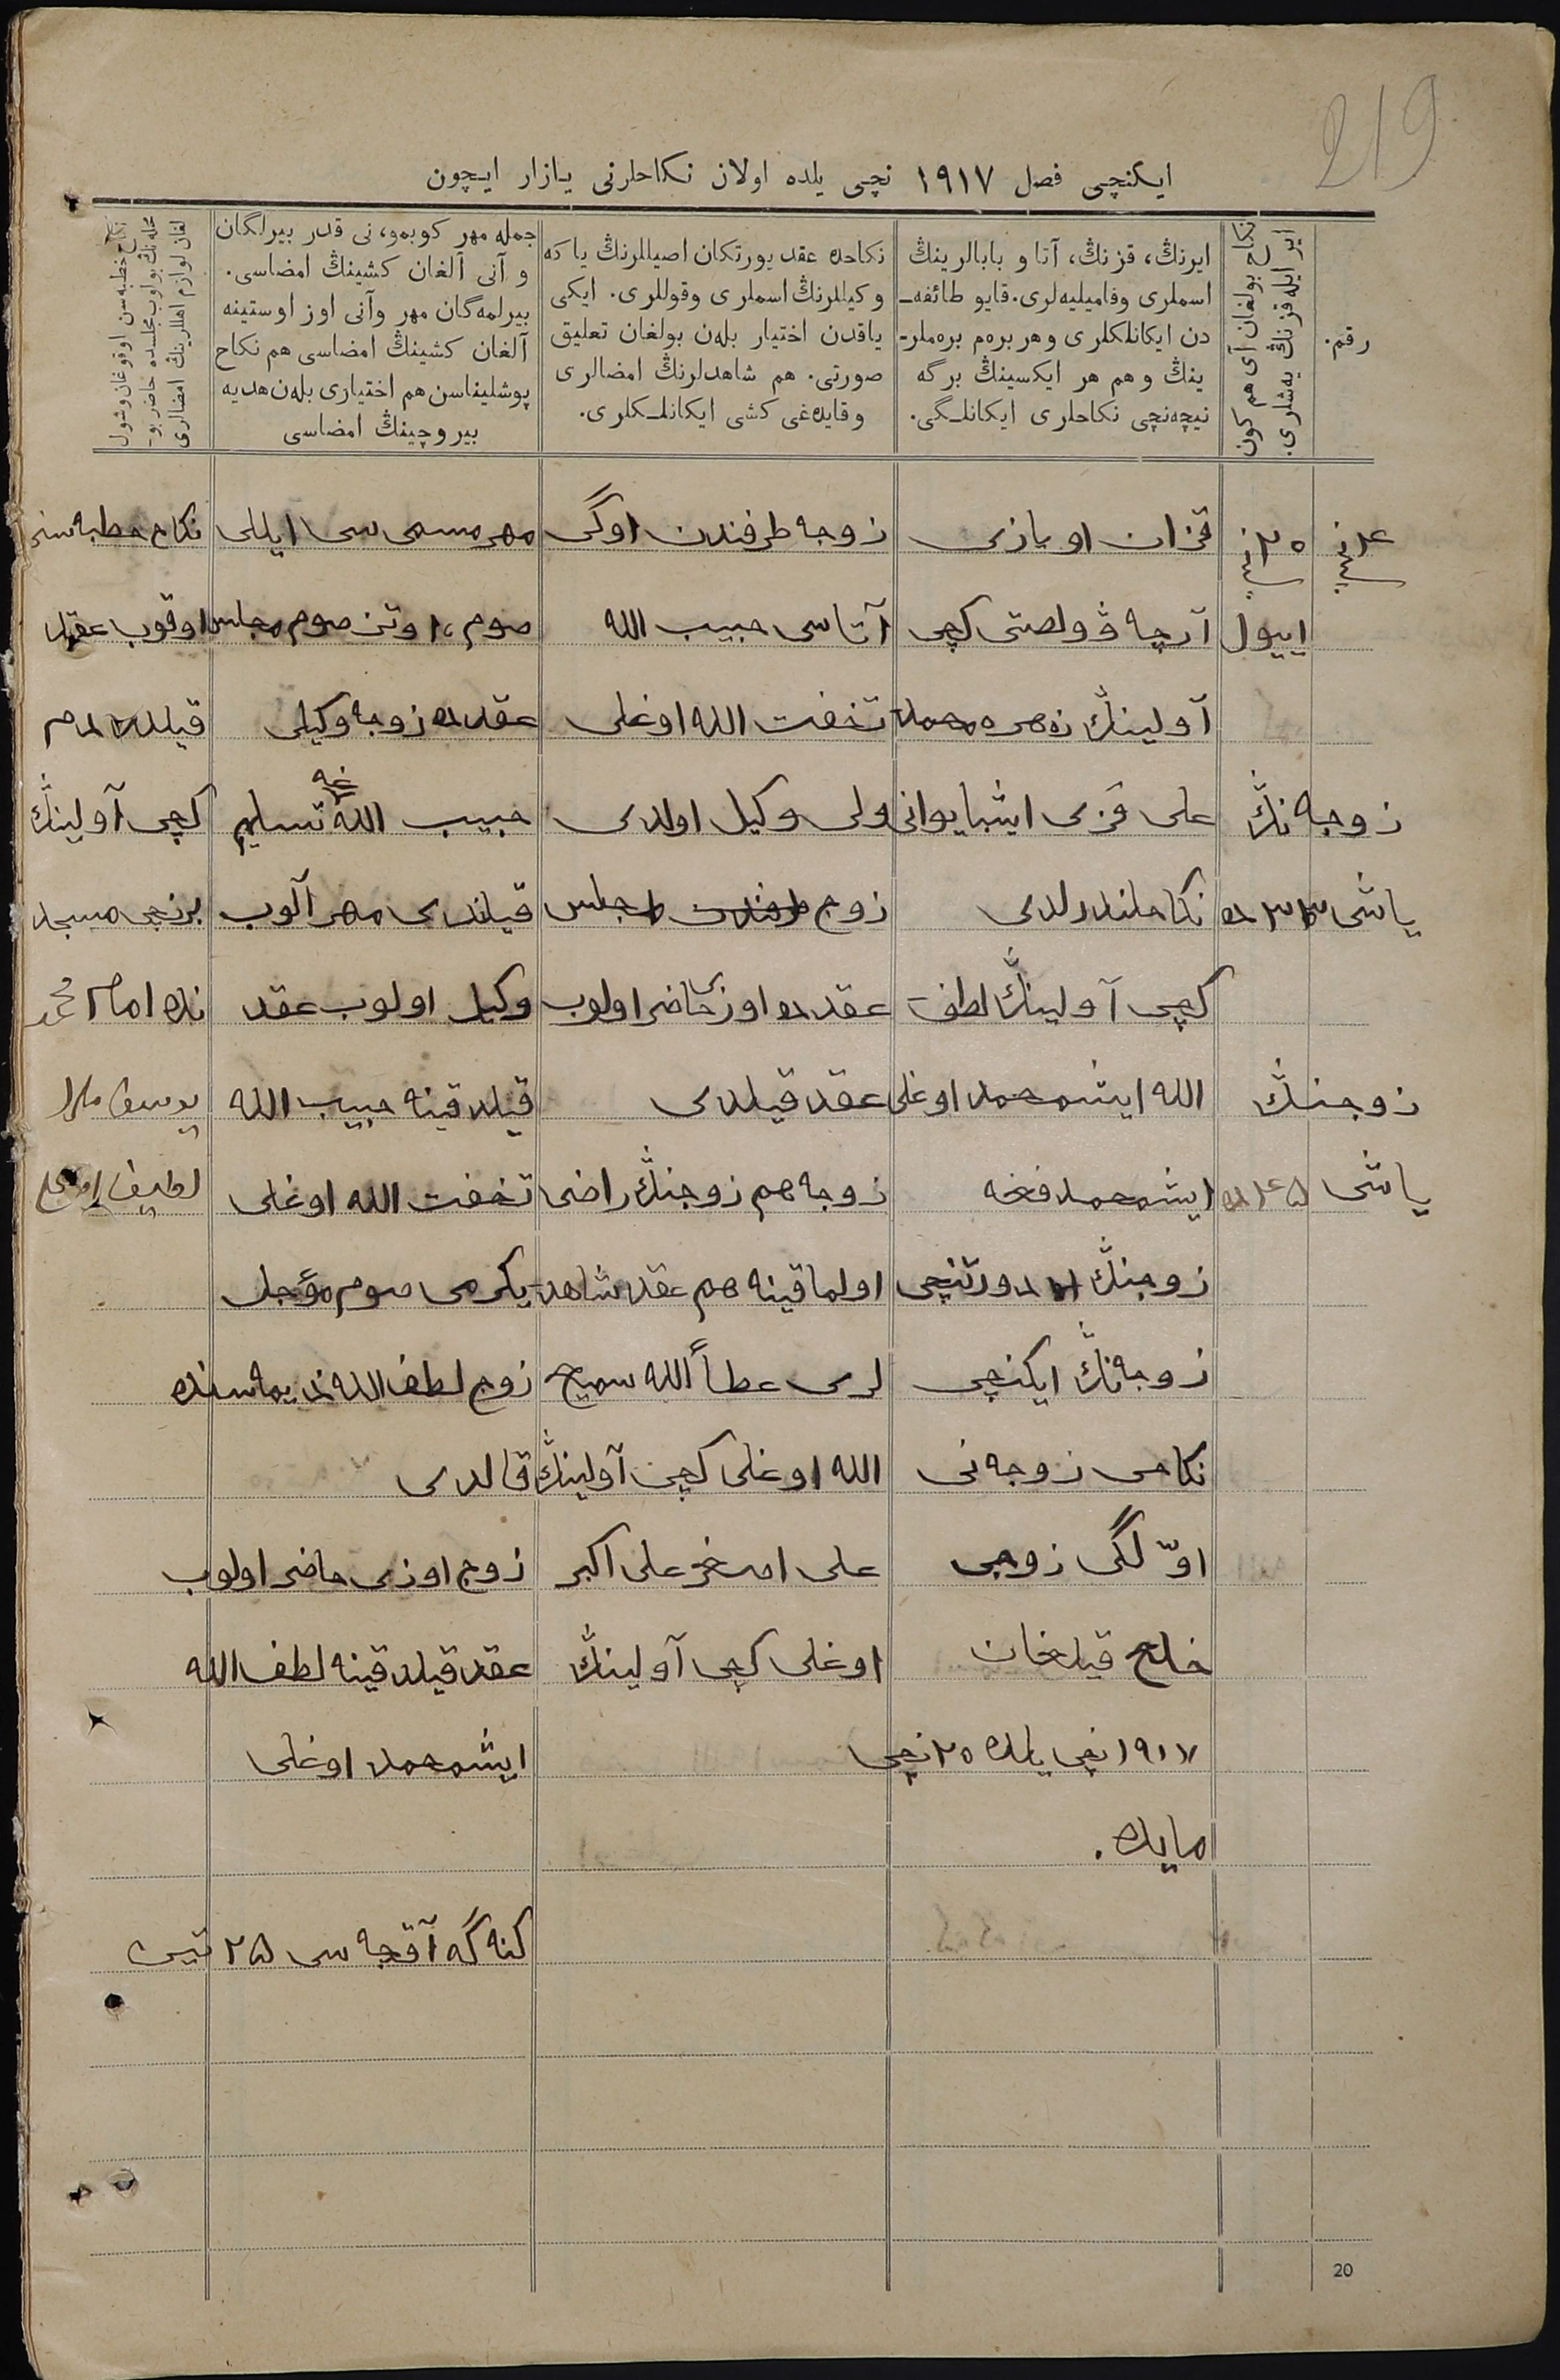 219
ایکنچی فصل ۱۹۱۷ نچی یلده اولان نکاحلرنی یازار ایچون
رقم.
نکاح بولغان آی هم کون
ایر ایله قزنڭ یه‌شلری.
ایرنڭ، قزنڭ، آتا و بابالرینڭ
اسملری وفامیلیه‌لری. قایو طائفه‌ـ
دن ایکانلکلری و هر بره‌م بره‌ملرـ
ینڭ و هم هر ایکسینڭ برگه
نیچه‌نچی نکاحلری ایکانلـگی.
نکاحده عقد یورتکان اصیللرنڭ یا که
وکیللرنڭ اسملری وقوللری. ایکی
یاقدن اختیار بله‌ن بولغان تعلیق
صورتی. هم شاهدلرنڭ امضالری
وقایده‌غی کشی ایکانلـکلری.
جمله مهر کوبمو، نی قدر بیرلگان
و آنی آلغان کشینڭ امضاسی.
بیرلمه‌گان مهر وآنی اوز اوستینه
آلغان کشینڭ امضاسی هم نکاح
پوشلیناسن هم اختیاری بله‌ن هدیه
بیروچینڭ امضاسی
نکاح خطبه‌سن اوقوغان وشول
محله‌نڭ بولوب مجلسده حاضر بوـ
لغان لوازم اهللرینڭ امضالری
۲۰ نچی
اییول
زوجه نڭ
یاشی ۳۳ ده
زوجنڭ
یاشی ۴۵ ده
قزان اویازی
آرچه ڤولصتی کچی
آولینڭ زهره محمد
علی قزی ایشبایوانی
نکاحلندرلدی
کچی آولینڭ لطف
الله ایشمحمد اوغلی
ایشمحمدفغه
زوجنڭ دورتنچی
زوجه‌نڭ ایکنچی
نکاحی زوجه‌نی
اوّلگی زوجی
خلع قیلغان
۱۹۱۷ نچی یلده ۲۰ نچی
مایده.
زوجه طرفندن اوگی
آتاسی حبیب الله
تحفت الله اوغلی
ولی وکیل اولدی
زوج طرفندن مجلس
عقدده اوزی حاضر اولوب
عقد قیلدی
زوجه هم زوجنڭ راضی
اولماقینه هم عقد شاهد
لری عطاٴالله سمیع
الله اوغلی کچی آولینڭ
علی اصغر علی اکبر
اوغلی کچی آولینڭ
مهر مسمی سی ایللی
صوم، اوتز صوم مجلس
عقدده زوجه وکیلی
حبیب الله غه تسلیم
قیلندی مهر آلوب
وکیل اولوب عقد
قیلدقینه حبیب الله
تحفت الله اوغلی
یکرمی صوم مؤجل
زوج لطف الله نڭ ذمه‌سنده
قالدی
زوج اوزی حاضر اولوب
عقد قیلدقینه لطف الله
ایشمحمد اوغلی
کنه‌گه آقچه سی ۲۵ تیین
نکاح خطبه سنی
اوقوب عقد
قیلدم
کچی آولینڭ
برنچی مسجد
نده امام محمد
یوسف ملا
لطیف اوغلی
20